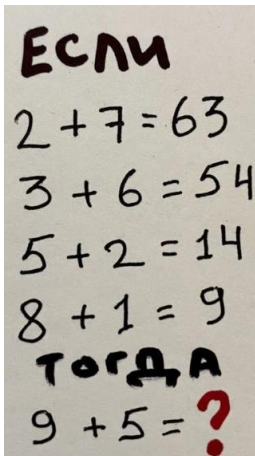 Если
2 + 7 = 63
3 + 6 = 54
5 + 2 = 14
8 + 1 = 9
тогда
9 + 5 = ?